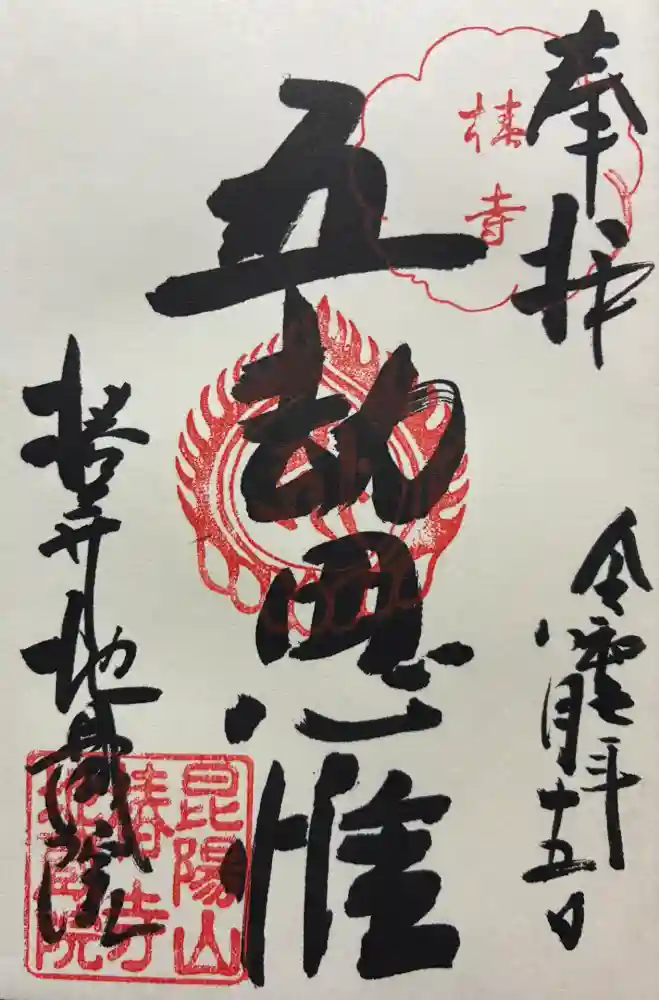 奉拝
椿寺
五劫思惟
令
年
八月十五日
椿寺地蔵院
昆陽山
椿寺
地蔵院